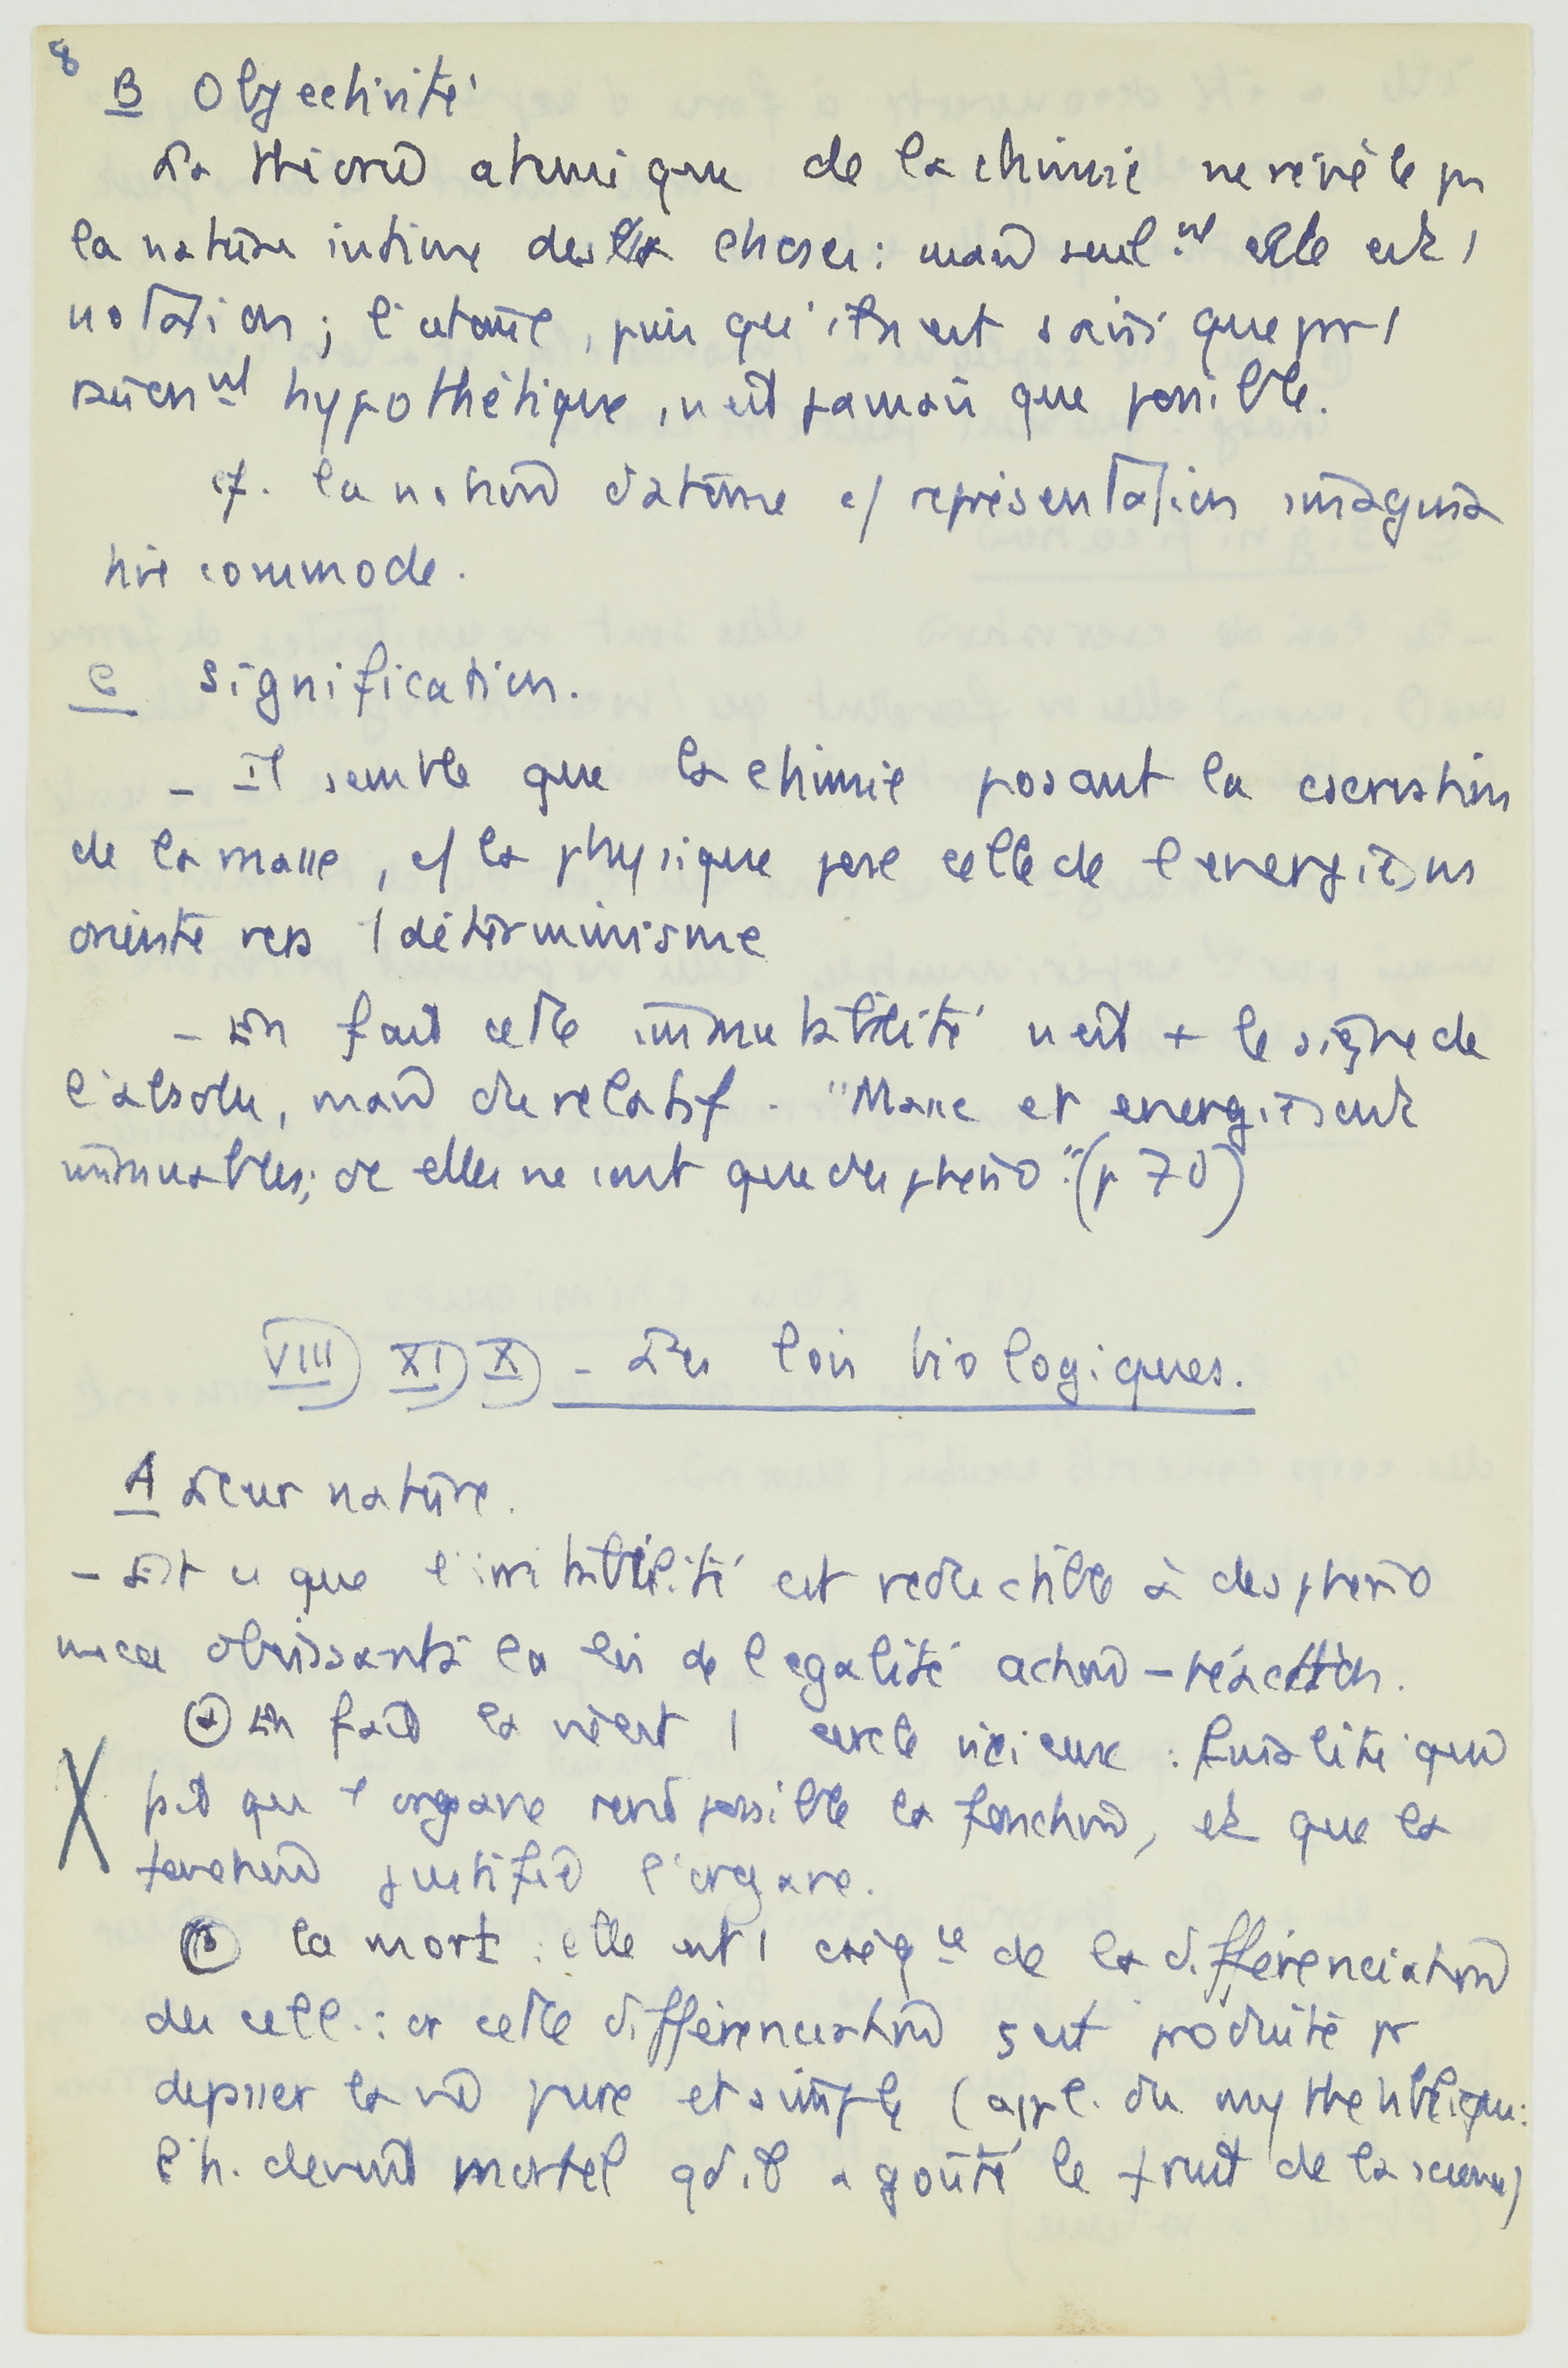 8
B Objectivité
La théorie atomique de la chimie ne révèle pas
la nature intime des choses : mais seulnt elle est 1
notation ; l'atome, puisqu'il n'est saisi que par 1
raisonnt hypothétique, n'est jamais que possible.
cf. la notion d'atome c/ représentation imagina
tive commode.
C Signification.
- Il semble que la chimie posant la conservation
de la masse, c/ la physique pose celle de l'energie, ns
oriente vers 1 déterminisme
- En fait cette immutabilité n'est + le signe de
l'absolu, mais du relatif. "Masse et energie sont
immuables; de elles ne sont que des phéno" (p 70)
VIII) XI) X) - Les lois biologiques.
A Leur nature.
- Est ce que l'irritabilité est réductible à des phéno
meca obéissant à la loi de l'égalité action - réaction.
(α) En fait la vie est 1 cercle vicieux : finalité qui
fait que l'organe rend possible la fonction, et que la
fonction justifie l'organe.
X
(β) la mort : elle est 1 conséqce de la différenciation
des cell. : or cette différenciation s'est produite pr
depsser la vie pure et simple (appl. du mythe biblique :
l'h. devient mortel qd il a goûté le fruit de la science)